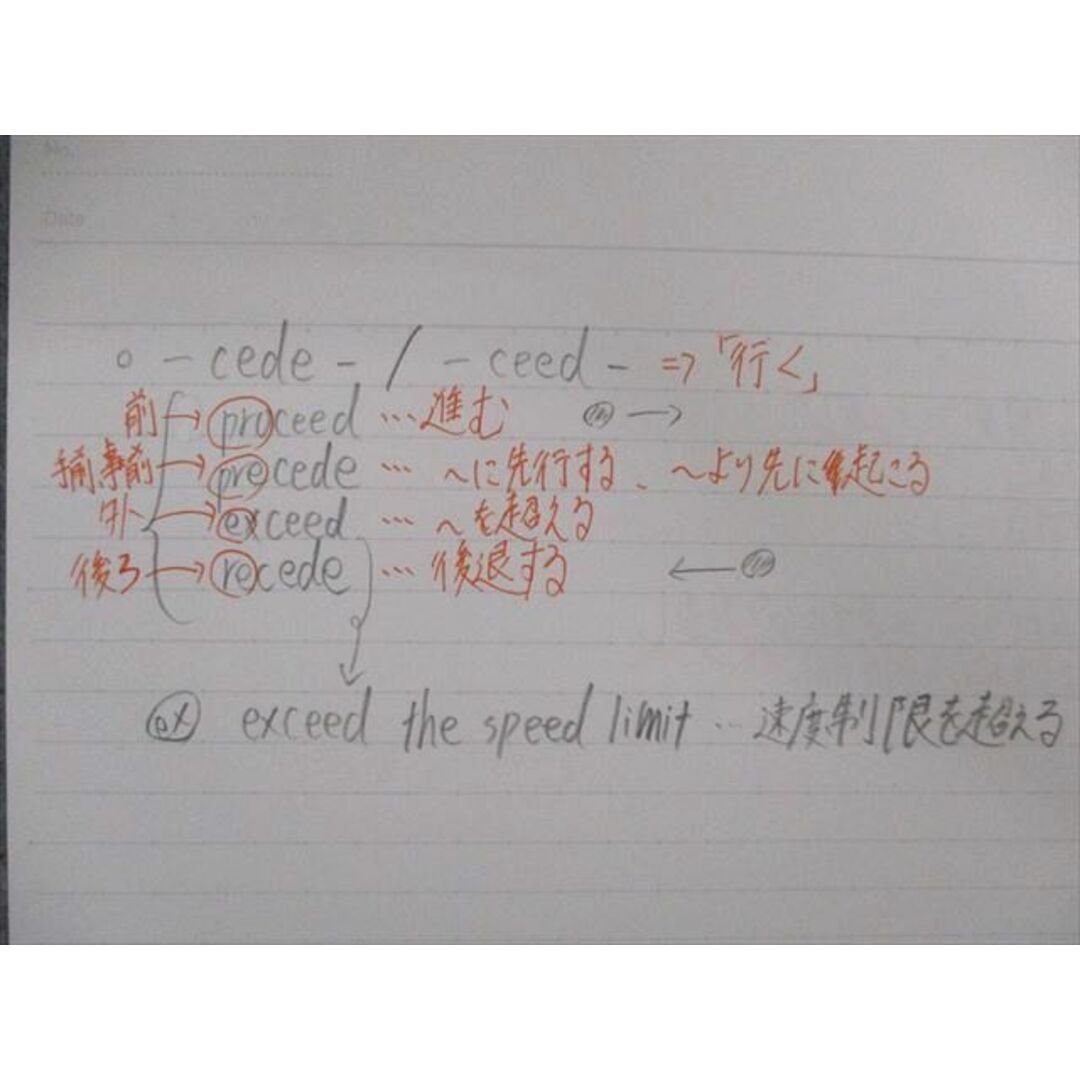 No.
Date
○ - cede - / - ceed - ⇒「行く」
前 → proceed … 進む →
事前 → precede … 〜に先行する、〜より先に起こる
外 → exceed … 〜を超える
後ろ → recede … 後退する ←
ex exceed the speed limit … 速度制限を超える